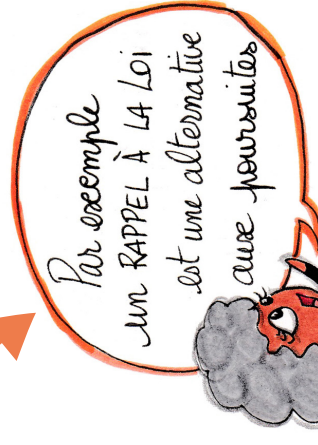 Par exemple
un RAPPEL À LA LOi
est une alternative
aux poursuites